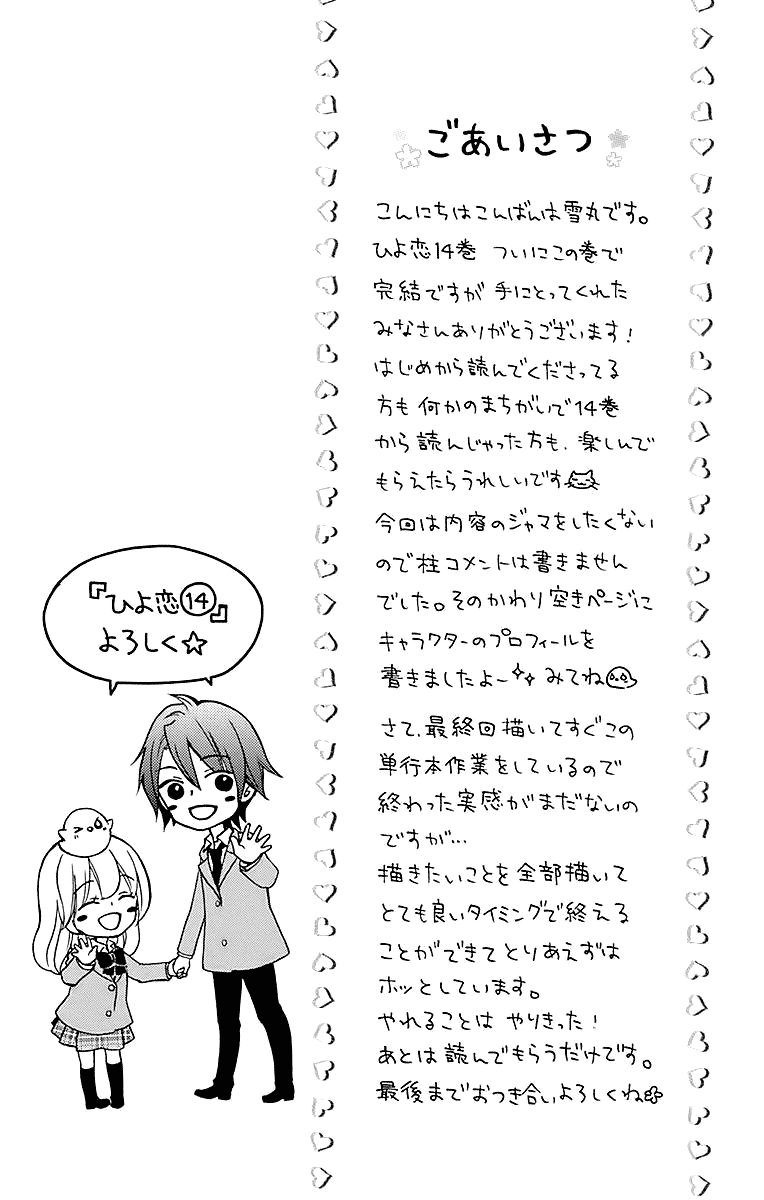 ごあいさつ
こんにちはこんばんは雪丸です。
ひよ恋14巻 ついにこの巻で
完結ですが 手にとってくれた
みなさんありがとうございます!
はじめから読んでくださってる
方も 何かのまちがいで14巻
から読んじゃった方も、楽しんで
もらえたらうれしいです
今回は内容のジャマをしたくない
ので柱コメントは書きません
でした。そのかわり空きページに
キャラクターのプロフィールを
書きましたよ〜 みてね
さて、最終回描いてすぐこの
単行本作業をしているので
終わった実感がまだないの
ですが…
描きたいことを全部描いて
とても良いタイミングで終える
ことができてとりあえずは
ホッとしています。
やれることは やりきった!
あとは読んでもらうだけです。
最後までおつき合いよろしくね
『ひよ恋⑭』
よろしく☆